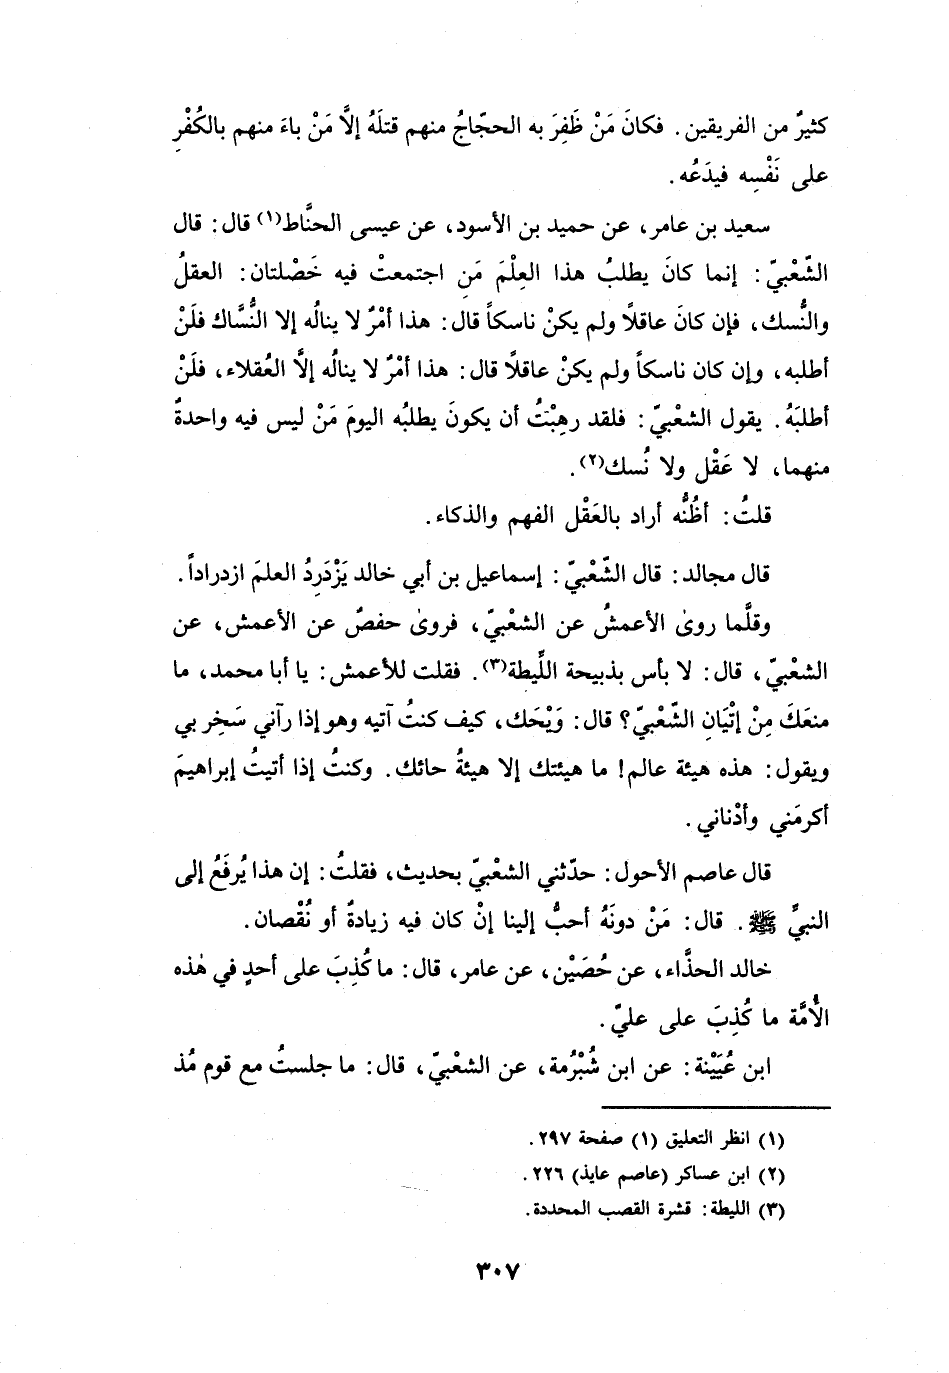 كثيرٌ من الفريقين. فكانَ مَنْ ظَفِرَ به الحجّاجُ منهم قتلَهُ إلاَّ مَنْ باءَ منهم بالكُفْرِ
على نَفْسِه فيدَعُه.
سعيد بن عامر، عن حميد بن الأسود، عن عيسى الحنَّاط(١) قال: قال
الشّعْبيّ: إنما كانَ يطلبُ هذا العِلْمَ مَنِ اجتمعتْ فيه خَصْلتان: العقلُ
والنُّسك، فإن كانَ عاقلاً ولم يكنْ ناسكاً قال: هذا أمْرٌ لا ينالُه إلا النُّسَّاك فلَنْ
أطلبه، وإن كان ناسكاً ولم يكنْ عاقلًا قال: هذا أمْرٌ لا ينالُه إلَّا العُقلاء، فلَنْ
أطلبَهُ. يقول الشعْبيّ: فلقد رهِبْتُ أن يكونَ يطلبُه اليومَ مَنْ ليس فيه واحدةٌ
منهما، لا عَقْل ولا نُسك(٢).
قلتُ: أظُنُّه أراد بالعَقْل الفهم والذكاء.
قال مجالد: قال الشّعْبيّ: إسماعيل بن أبي خالد يَزْدَرِدُ العلمَ ازدراداً.
وقلَّما روىٰ الأعمشُ عن الشعْبيّ، فروىٰ حفصٌ عن الأعمش، عن
الشعْبيّ، قال: لا بأس بذبيحة اللِّيطة(٣). فقلت للأعمش: يا أبا محمد، ما
منعَكَ مِنْ إتْيَانِ الشّعْبيّ؟ قال: وَيْحَك، كيف كنتُ آتيه وهو إذا رآني سَخِر بي
ويقول: هذه هيئة عالم! ما هيئتك إلا هيئةُ حائك. وكنتُ إذا أتيتُ إبراهيمَ
أكرمَني وأدْناني.
قال عاصم الأحول: حدّثني الشعْبيّ بحديث، فقلتُ: إن هذا يُرفَعُ إلى
النبيِّ ﷺ. قال: مَنْ دونَهُ أحبُّ إلينا إنْ كان فيه زيادةٌ أو نُقْصان.
خالد الحذَّاء، عن حُصَيْن، عن عامر، قال: ما كُذِبَ على أحدٍ في هٰذه
الأُمَّة ما كُذِبَ على عليّ.
ابن عُيَيْنة: عن ابن شُبْرُمة، عن الشعْبيّ، قال: ما جلستُ مع قوم مُذ
(١) انظر التعليق (١) صفحة ٢٩٧.
(٢) ابن عساكر (عاصم عايذ) ٢٢٦.
(٣) الليطة: قشرة القصب المحددة.
٣٠٧